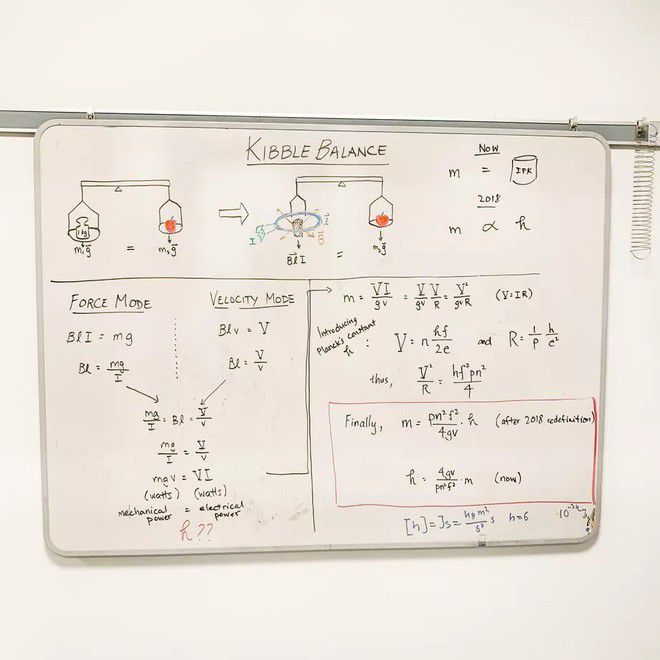 KIBBLE BALANCE
1kg
m₁g⃗ = m₂g⃗
I l⃗ B⃗
Bl⃗I = m₂g⃗
NOW
m = IPK
2018
m ∝ h
FORCE MODE
BlI = mg
Bl = mg/I
VELOCITY MODE
Blv = V
Bl = V/v
mg/I = Bl = V/v
mg/I = V/v
mgv = VI
(watts) (watts)
mechanical power = electrical power
h??
m = VI/gv = V/gv V/R = V²/gvR (V=IR)
Introducing
Planck's constant
h :
V = n hf/2e and R = 1/p h/e²
thus, V²/R = hf²pn²/4
Finally, m = pn²f²/4gv · h (after 2018 redefinition)
h = 4gv/pn²f² · m (now)
[h] = Js = kg m²/s² s h=6 10⁻³⁴ Js